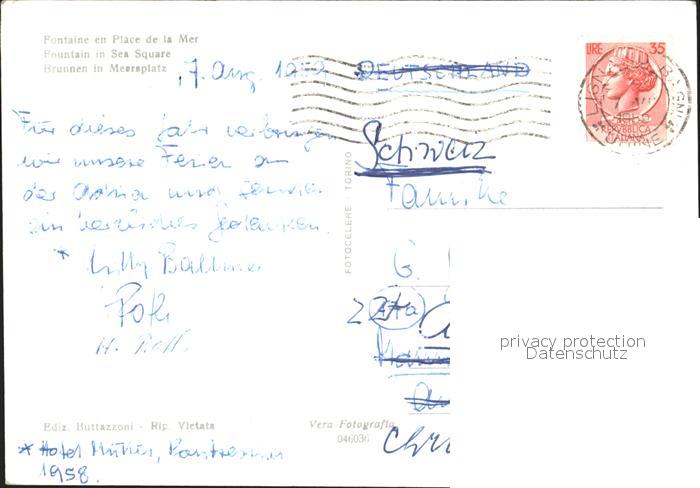 Fontaine en Place de la Mer
Fountain in Sea Square
Brunnen in Meersplatz
7. Aug. 1959
DEUTSCHLAND
LIRE 35
REPVBBLICA
ITALIANA
UDINE
Für dieses Jahr verbringen
wir unsere Ferien an
der Adria und senden
ein herzliches Gedenken.
Schweiz
Familie
FOTOCELERE TORINO
* Lilly Ballmer
G.
H. Roth
privacy protection
Datenschutz
Ediz. Buttazzoni - Rip. Vietata
Vera Fotografia
046036
* Hotel Müller, Pontresina
1958.